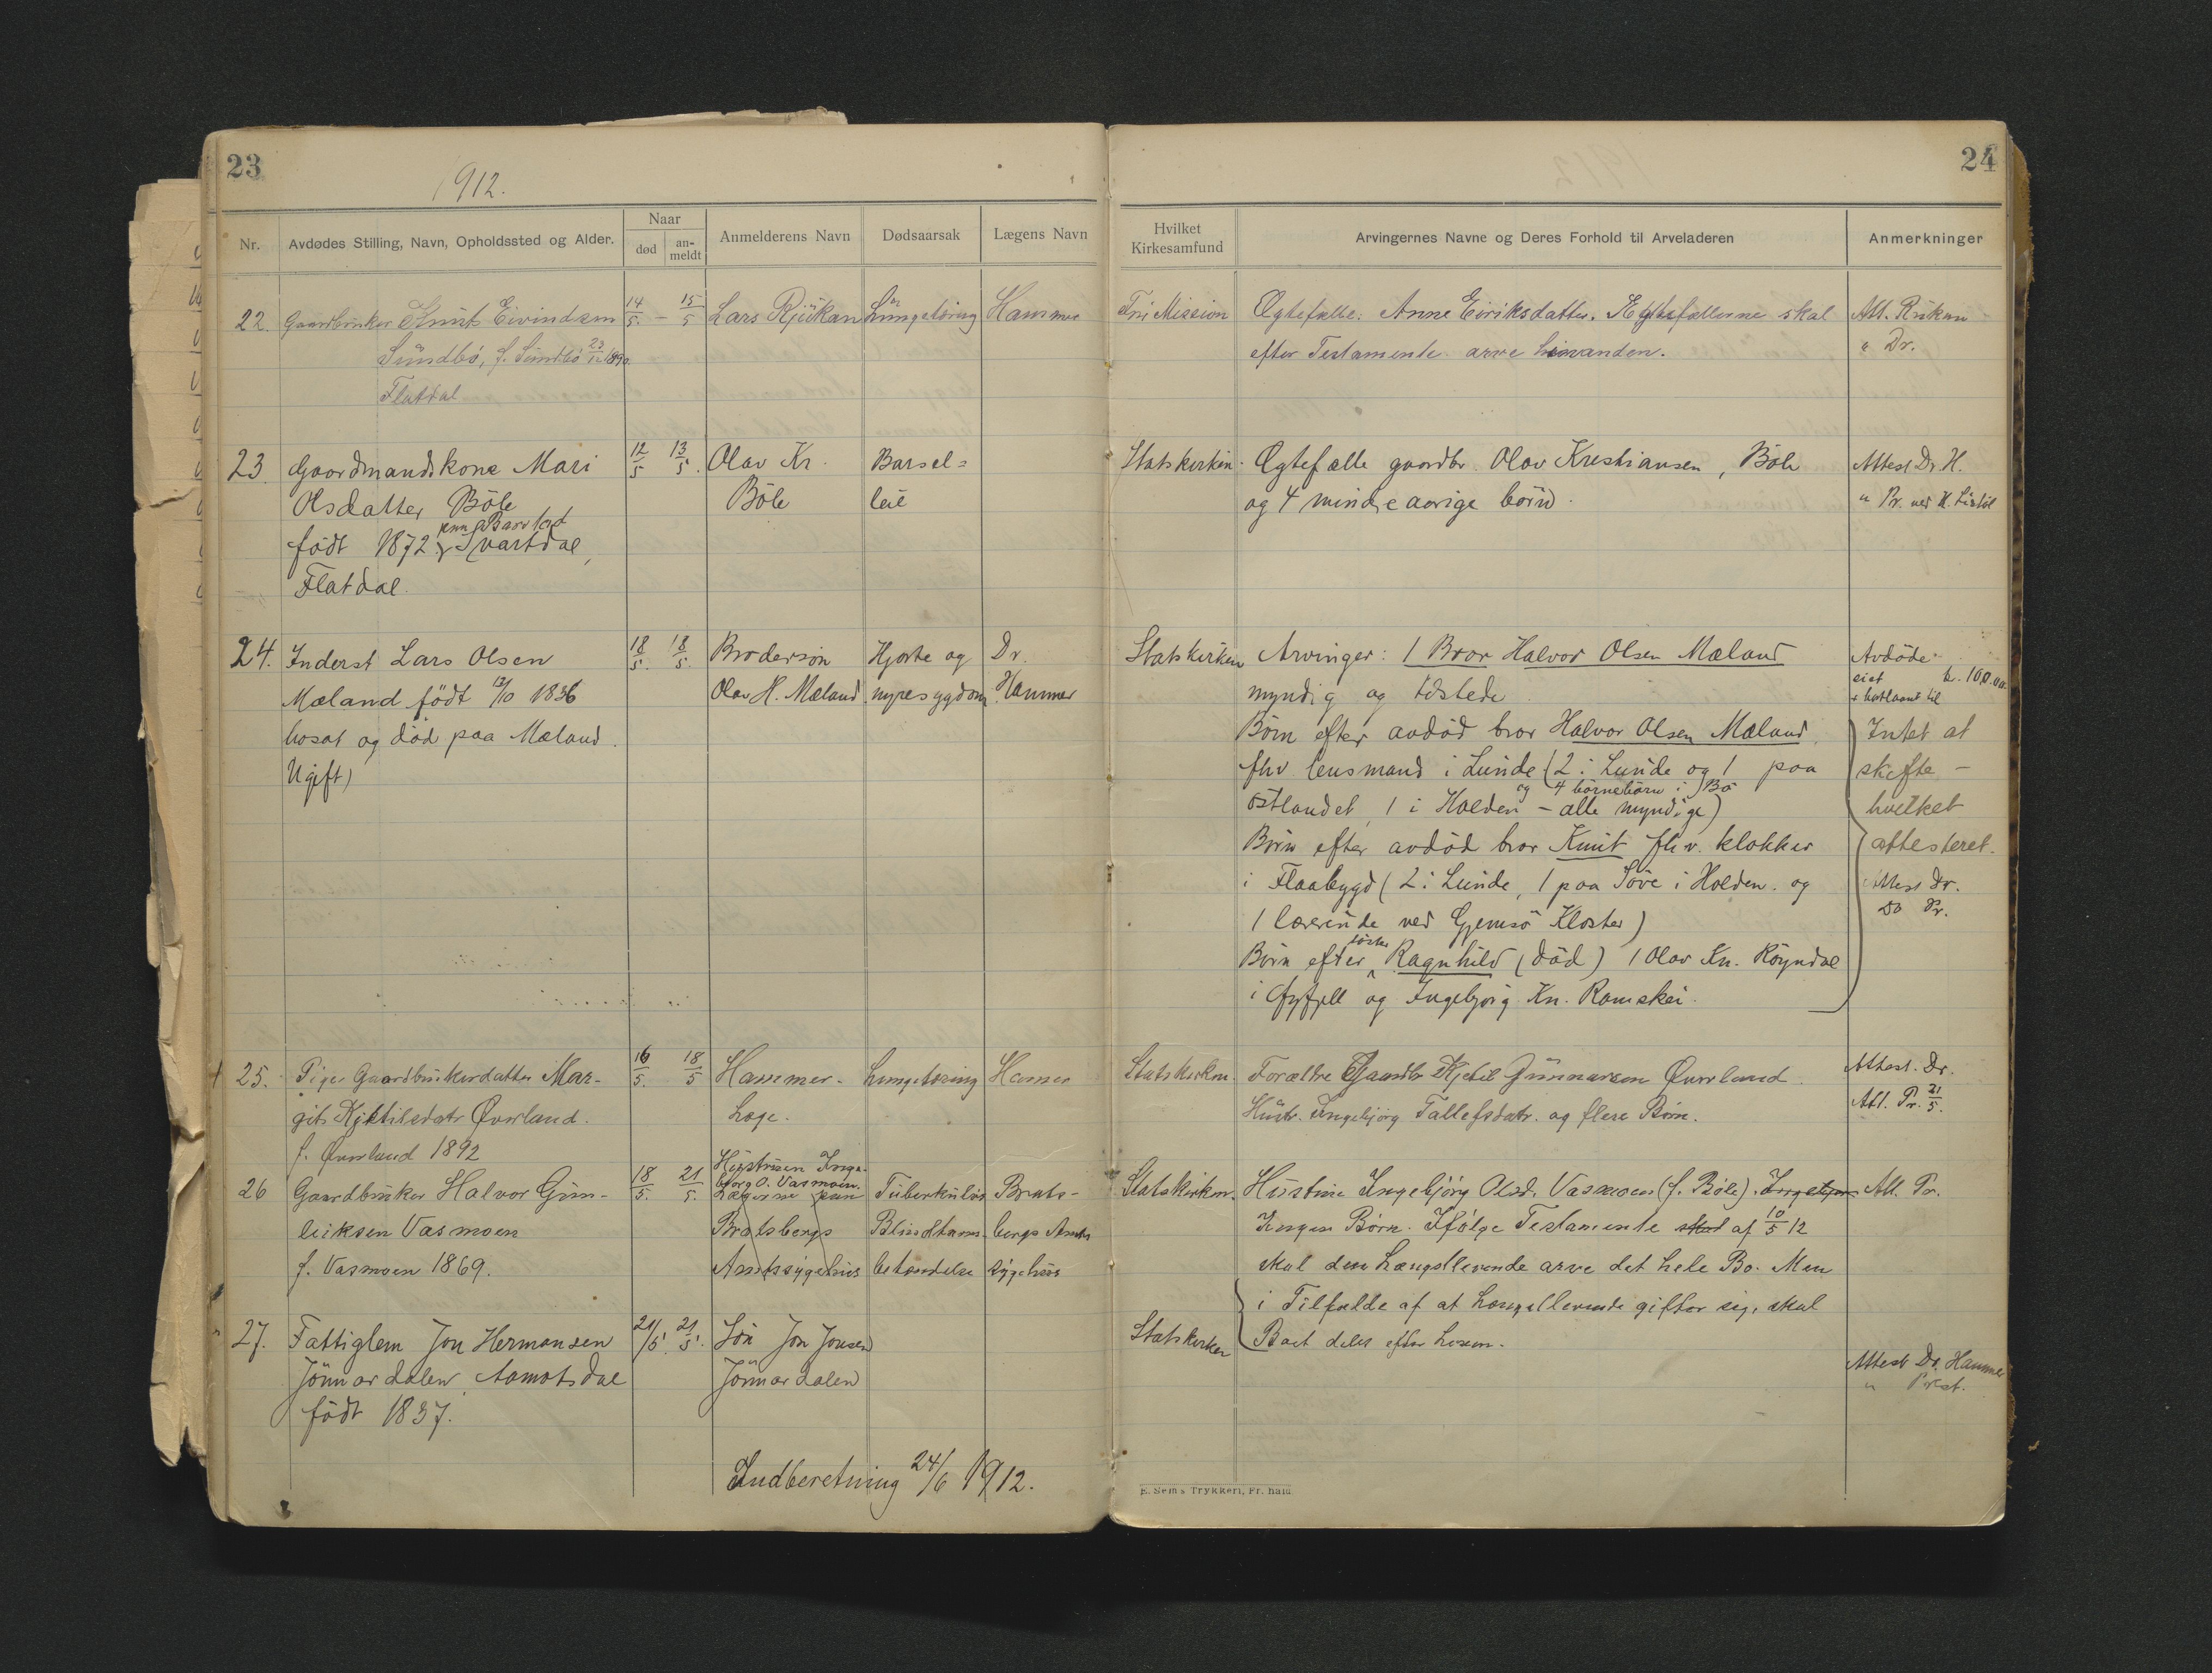 23
1912.
Nr.
Avdødes Stilling, Navn, Opholdssted og Alder.
Naar
død
an-
meldt
Anmelderens Navn
Dødsaarsak
Lægens Navn
22. Gaardbruker Knut Eivindsen 14/5. – 15/5 Lars Rjukan Lungetæring Hammer
Sundbö, f. Sundbö 23/12 1890.
Flatdal
23. Gaardmandskone Mari 12/5 13/5. Olav Kr. Barsel=
Olsdatter Böle Böle leie
født 1872 Svartdal,
Flatdal.
24. Inderst Lars Olsen 18/5. 18/5. Brodersön Hjerte og Dr.
Mæland født 12/10 1836 Olav H. Mæland nyresygdom Hammer
bosat og död paa Mæland.
Ugift)
25. Pige Gaardbrukerdatter Mar- 16/5. 18/5 Hammer- Lungetæring Hammer
git Kjetilsdatr Øverland. Læge.
f. Øverland 1892
Hustruen Inge-
björg O. Vasmoen.
26 Gaardbruker Halvor Gun- 18/5. 21/5. Lægerne paa Tuberkulös Brats-
leiksen Vasmoen Bratsbergs Blindtarms- bergs Amts
f. Vasmoen 1869. Amtssygehus betændelse Sygehus
27. Fattiglem Jon Hermansen 21/5. 21/5. Sön Jon Jonsen
Jönnardalen, Aamotsdal Jönnardalen
født 1837.
Indberetning 24/6 1912.
24
Hvilket
Kirkesamfund
Arvingernes Navne og Deres Forhold til Arveladeren
Anmerkninger
Fri Mission Ægtefælle: Anne Eiriksdatter. Ægtefællerne skal Att. Rukan
efter Testamente arve hinanden. " Dr.
Statskirken. Ægtefælle gaardbr. Olav Kristiansen, Böle Attest Dr. H.
og 4 mindreaarige børn. " Pr. ved H.
Statskirken Arvinger: 1 Bror Halvor Olsen Mæland Avdöde
myndig og tilstede eiet kr. 100.00.
Börn efter avdöd bror Halvor Olsen Mæland, Intet at
fhv. lensmand i Lunde (2 i Lunde og 1 paa skifte –
og 4 börnebörn i Bö
östlandet, 1 i Holden – alle myndige) hvilket
Börn efter avdöd bror Knut fhv. klokker attesteret.
i Flaabygd (2 i Lunde, 1 paa Söve i Holden. og Attest Dr.
1 lærerinde ved Gjemsö Kloster) Do Pr.
söster
Börn efter Ragnhild (död) 1 Olav Kn. Röyndal
i Fyfjell og Ingebjörg Kn. Ramskei.
Statskirken. Forældre Gaardbr Kjetil Gunnarsen Øverland. Attest. Dr.
Hustr. Ingebjörg Tallefsdatr. og flere Börn. Att. Pr. 21/5.
Statskirken. Hustru Ingebjörg Olsd. Vasmoen (f. Böle). Att. Pr.
Ingen Börn. Ifölge Testamente skal af 10/5 12
skal den Længstlevende arve det hele Bo. Men
i Tilfælde af at Længstlevende gifter sig, skal
Statskirken Boet deles efter Loven.
Attest Dr. Hammer
" Prest.
E. Sem's Trykkeri, Fr.hald